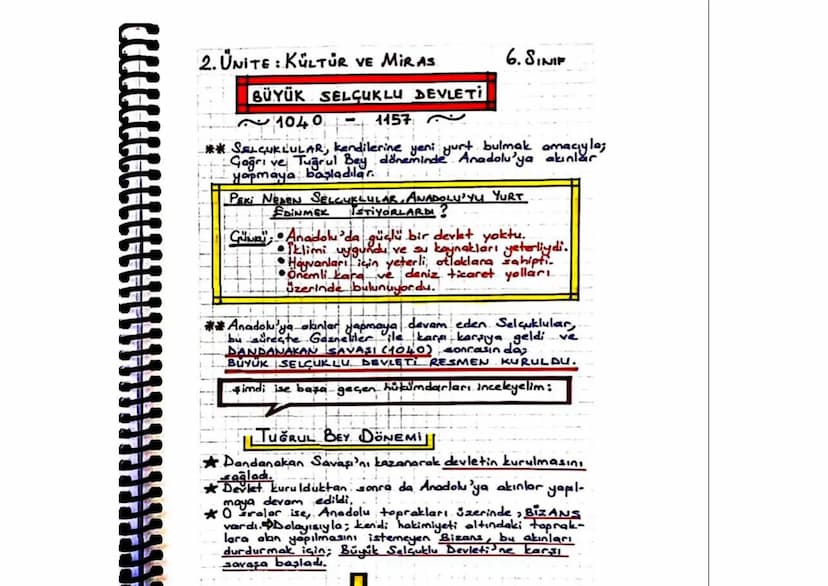 2. ÜNİTE: KÜLTÜR VE MİRAS 6. SINIF
BÜYÜK SELÇUKLU DEVLETİ
1040 - 1157
** SELÇUKLULAR, kendilerine yeni yurt bulmak amacıyla;
Çağrı ve Tuğrul Bey döneminde Anadolu'ya akınlar
yapmaya başladılar.
PEKİ NEDEN SELÇUKLULAR, ANADOLU'YU YURT
EDİNMEK İSTİYORLARDI?
ÇÜNKÜ; • Anadolu'da güçlü bir devlet yoktu.
• İklimi uygundu ve su kaynakları yeterliydi.
• Hayvanları için yeterli otlaklara sahipti.
• Önemli kara ve deniz ticaret yolları
üzerinde bulunuyordu.
** Anadolu'ya akınlar yapmaya devam eden Selçuklular,
bu süreçte Gazneliler ile karşı karşıya geldi ve
DANDANAKAN SAVAŞI (1040) sonrasında;
BÜYÜK SELÇUKLU DEVLETİ RESMEN KURULDU.
Şimdi ise başa geçen hükümdarları inceleyelim:
TUĞRUL BEY DÖNEMİ
★ Dandanakan Savaşı'nı kazanarak devletin kurulmasını
sağladı.
★ Devlet kurulduktan sonra da Anadolu'ya akınlar yapıl-
maya devam edildi.
★ O sıralar ise, Anadolu toprakları üzerinde; BİZANS
vardı. ⇒ Dolayısıyla; kendi hakimiyeti altındaki toprak-
lara akın yapılmasını istemeyen Bizans, bu akınları
durdurmak için; Büyük Selçuklu Devleti'ne karşı
savaşa başladı.